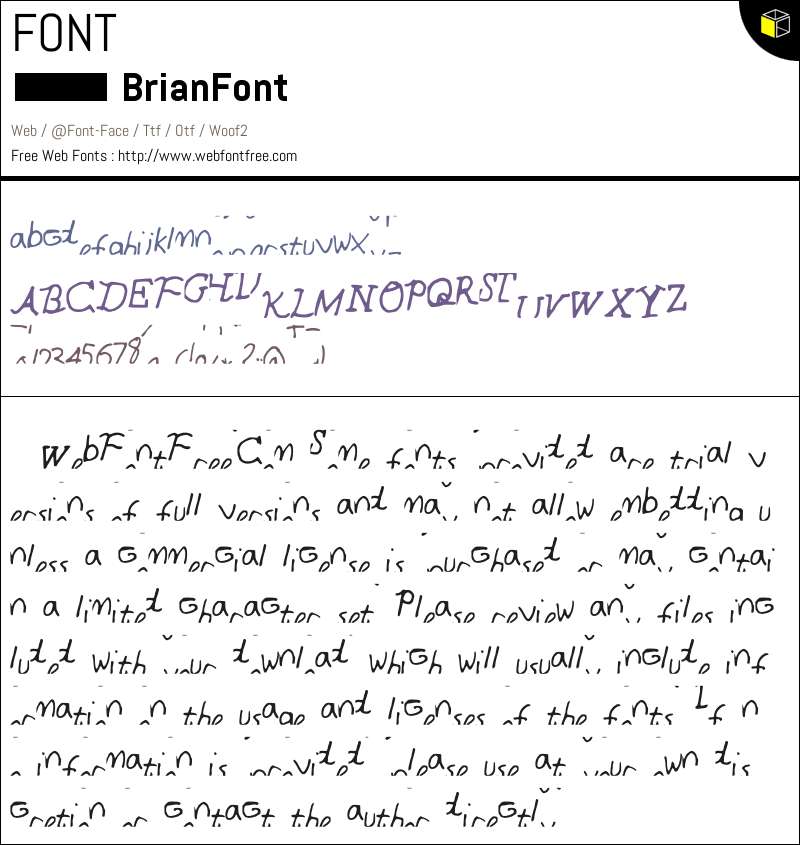 FONT
BrianFont
Web / @Font-Face / Ttf / Otf / Woof2
Free Web Fonts : http://www.webfontfree.com
abcdefghijklmnopqrstuvwxyz
ABCDEFGHIJKLMNOPQRSTUVWXYZ
12345678
WebFontFree Com Some fonts provided are trial v
ersions of full versions and may not allow embedding u
nless a commercial license is purchased or may contai
n a limited character set Please review any files inc
luded with your download which will usually include inf
ormation on the usage and licenses of the fonts If n
o information is provided please use at your own dis
cretion or contact the author directly